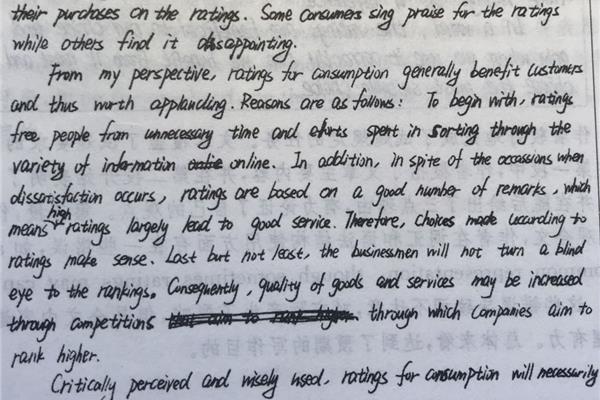 their purchases on the ratings. Some consumers sing praise for the ratings
while others find it disappointing.
From my perspective, ratings for consumption generally benefit customers
and thus worth applauding. Reasons are as follows: To begin with, ratings
free people from unnecessary time and efforts spent in sorting through the
variety of information online. In addition, in spite of the occassions when
dissatisfaction occurs, ratings are based on a good number of remarks, which
means high ratings largely lead to good service. Therefore, choices made according to
ratings make sense. Last but not least, the businessmen will not turn a blind
eye to the rankings. Consequently, quality of goods and services may be increased
through competitions through which companies aim to
rank higher.
Critically perceived and wisely used, ratings for consumption will necessarily